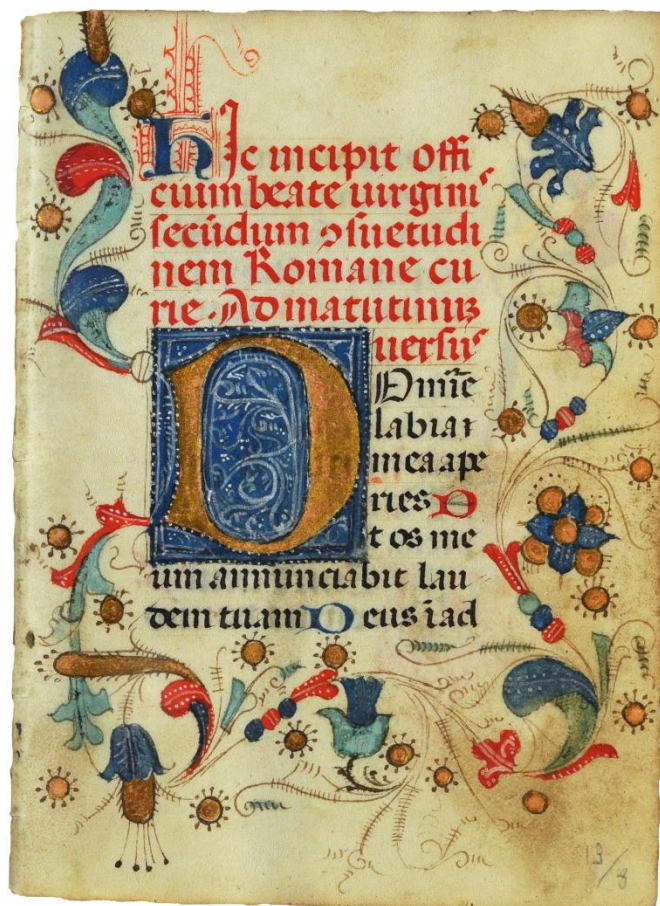 hIc incipit offi
cium beate uirginiꝰ
secūdum ↄsuetudi
nem Romane cu
rie. Ad matutinuꝫ
uersuꝰ
DOmīe
labia
mea ape
ries E
t os me
um annunciabit lau
dem tuam Deus ī ad
13/8